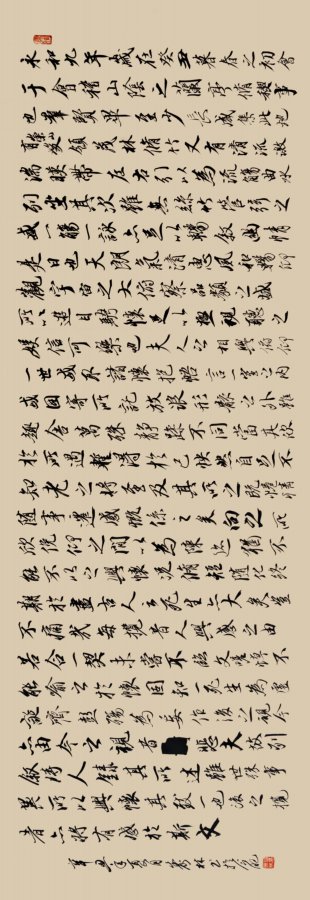 永和九年歲在癸丑暮春之初會
于會稽山陰之蘭亭脩稧事
也群賢畢至少長咸集此地
崇山峻領茂林脩竹又有清流激
湍暎帶左右引以為流觴曲水
列坐其次雖無絲竹管弦之
盛一觴一詠亦足以暢叙幽情
是日也天朗氣清惠風和暢仰
觀宇宙之大俯察品類之盛
所以遊目騁懷足以極視聽之
娛信可樂也夫人之相與俯仰
一世或取諸懷抱悟言一室之內
或因寄所託放浪形骸之外雖
趣舍萬殊靜躁不同當其欣
於所遇蹔得於己快然自足不
知老之將至及其所之既惓情
隨事遷感慨係之矣向之所
欣俛仰之間以為陳迹猶不
能不以之興懷況脩短隨化終
期於盡古人云死生亦大矣豈
不痛哉每攬昔人興感之由
若合一契未嘗不臨文嗟悼不
能喻之於懷固知一死生為虛
誕齊彭殤為妄作後之視今
亦由今之視昔悲夫故列
叙時人錄其所述雖世殊事
異所以興懷其致一也後之攬
者亦將有感於斯文
辛丑年